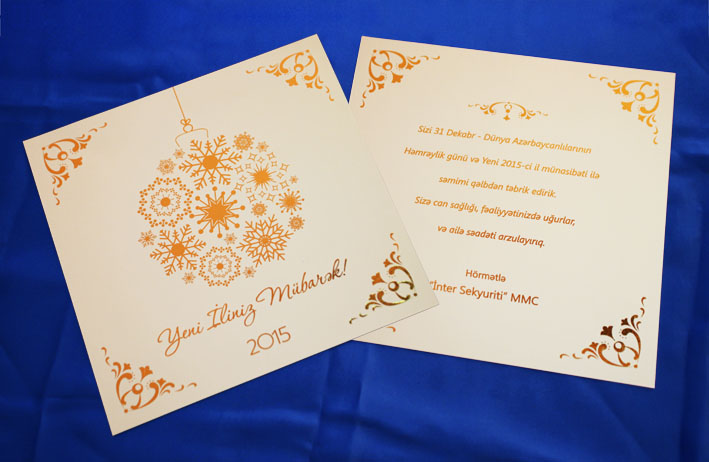 Yeni İliniz Mübarək!
2015
Sizi 31 Dekabr - Dünya Azərbaycanlılarının
Həmrəylik günü və Yeni 2015-ci il münasibəti ilə
səmimi qəlbdən təbrik edirik.
Sizə can sağlığı, fəaliyyətinizdə uğurlar,
və ailə səadəti arzulayırıq.
Hörmətlə
"Inter Sekyuriti" MMC